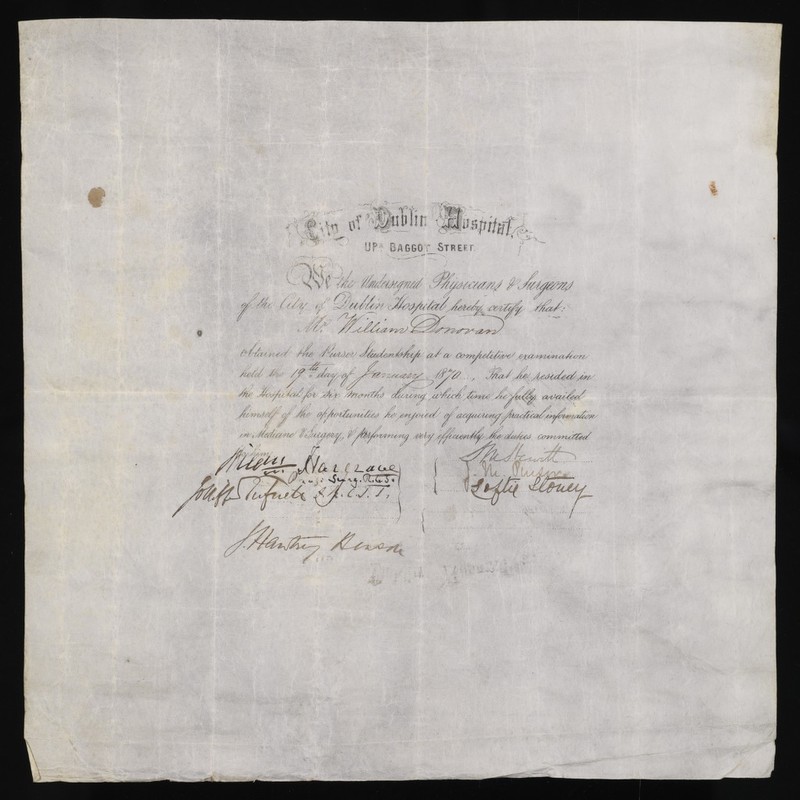 City of Dublin Hospital.
UPR BAGGOT STREET
We the Undersigned Physicians & Surgeons
of the City of Dublin Hospital hereby certify that:
Mr William Donovan
obtained the Purser Studentship at a competitive examination
held the 19th day of January 1870. That he resided in
the Hospital for six months during which time he fully availed
himself of the opportunities he enjoyed of acquiring practical information
in Medicine & Surgery, & performing very efficiently the duties committed
William Hargrave
Surg. R.C.S.I.
Jolliffe Tufnell
Loftie Stoney
J. Hawtrey Benson